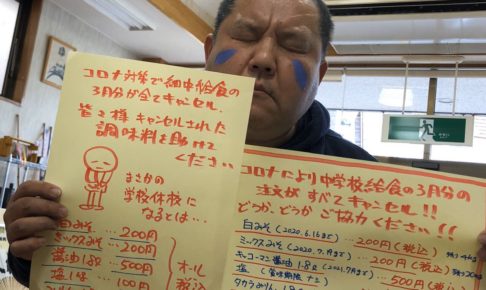 コロナ対策で細中給食の
3月分が全てキャンセル。
皆々様キャンセルされた
調味料を助けて
ください
まさかの
学校休校に
なるとは…
白みそ…200円
ミックスみそ…200円
醤油1.8ℓ…500円
塩1kg…100円
オール
税込
コロナにより中学校給食の3月分の
注文がすべてキャンセル!!
どうか、どうか ご協力ください((
白みそ(2020.6.16まで)…200円(税込)
ミックスみそ(2020.7月まで)…200円(税込)
キッコーマン醤油1.8ℓ(2021.7月まで)…500円(税込)
塩(賞味期限ナシ)
タカラみりん1.8ℓ